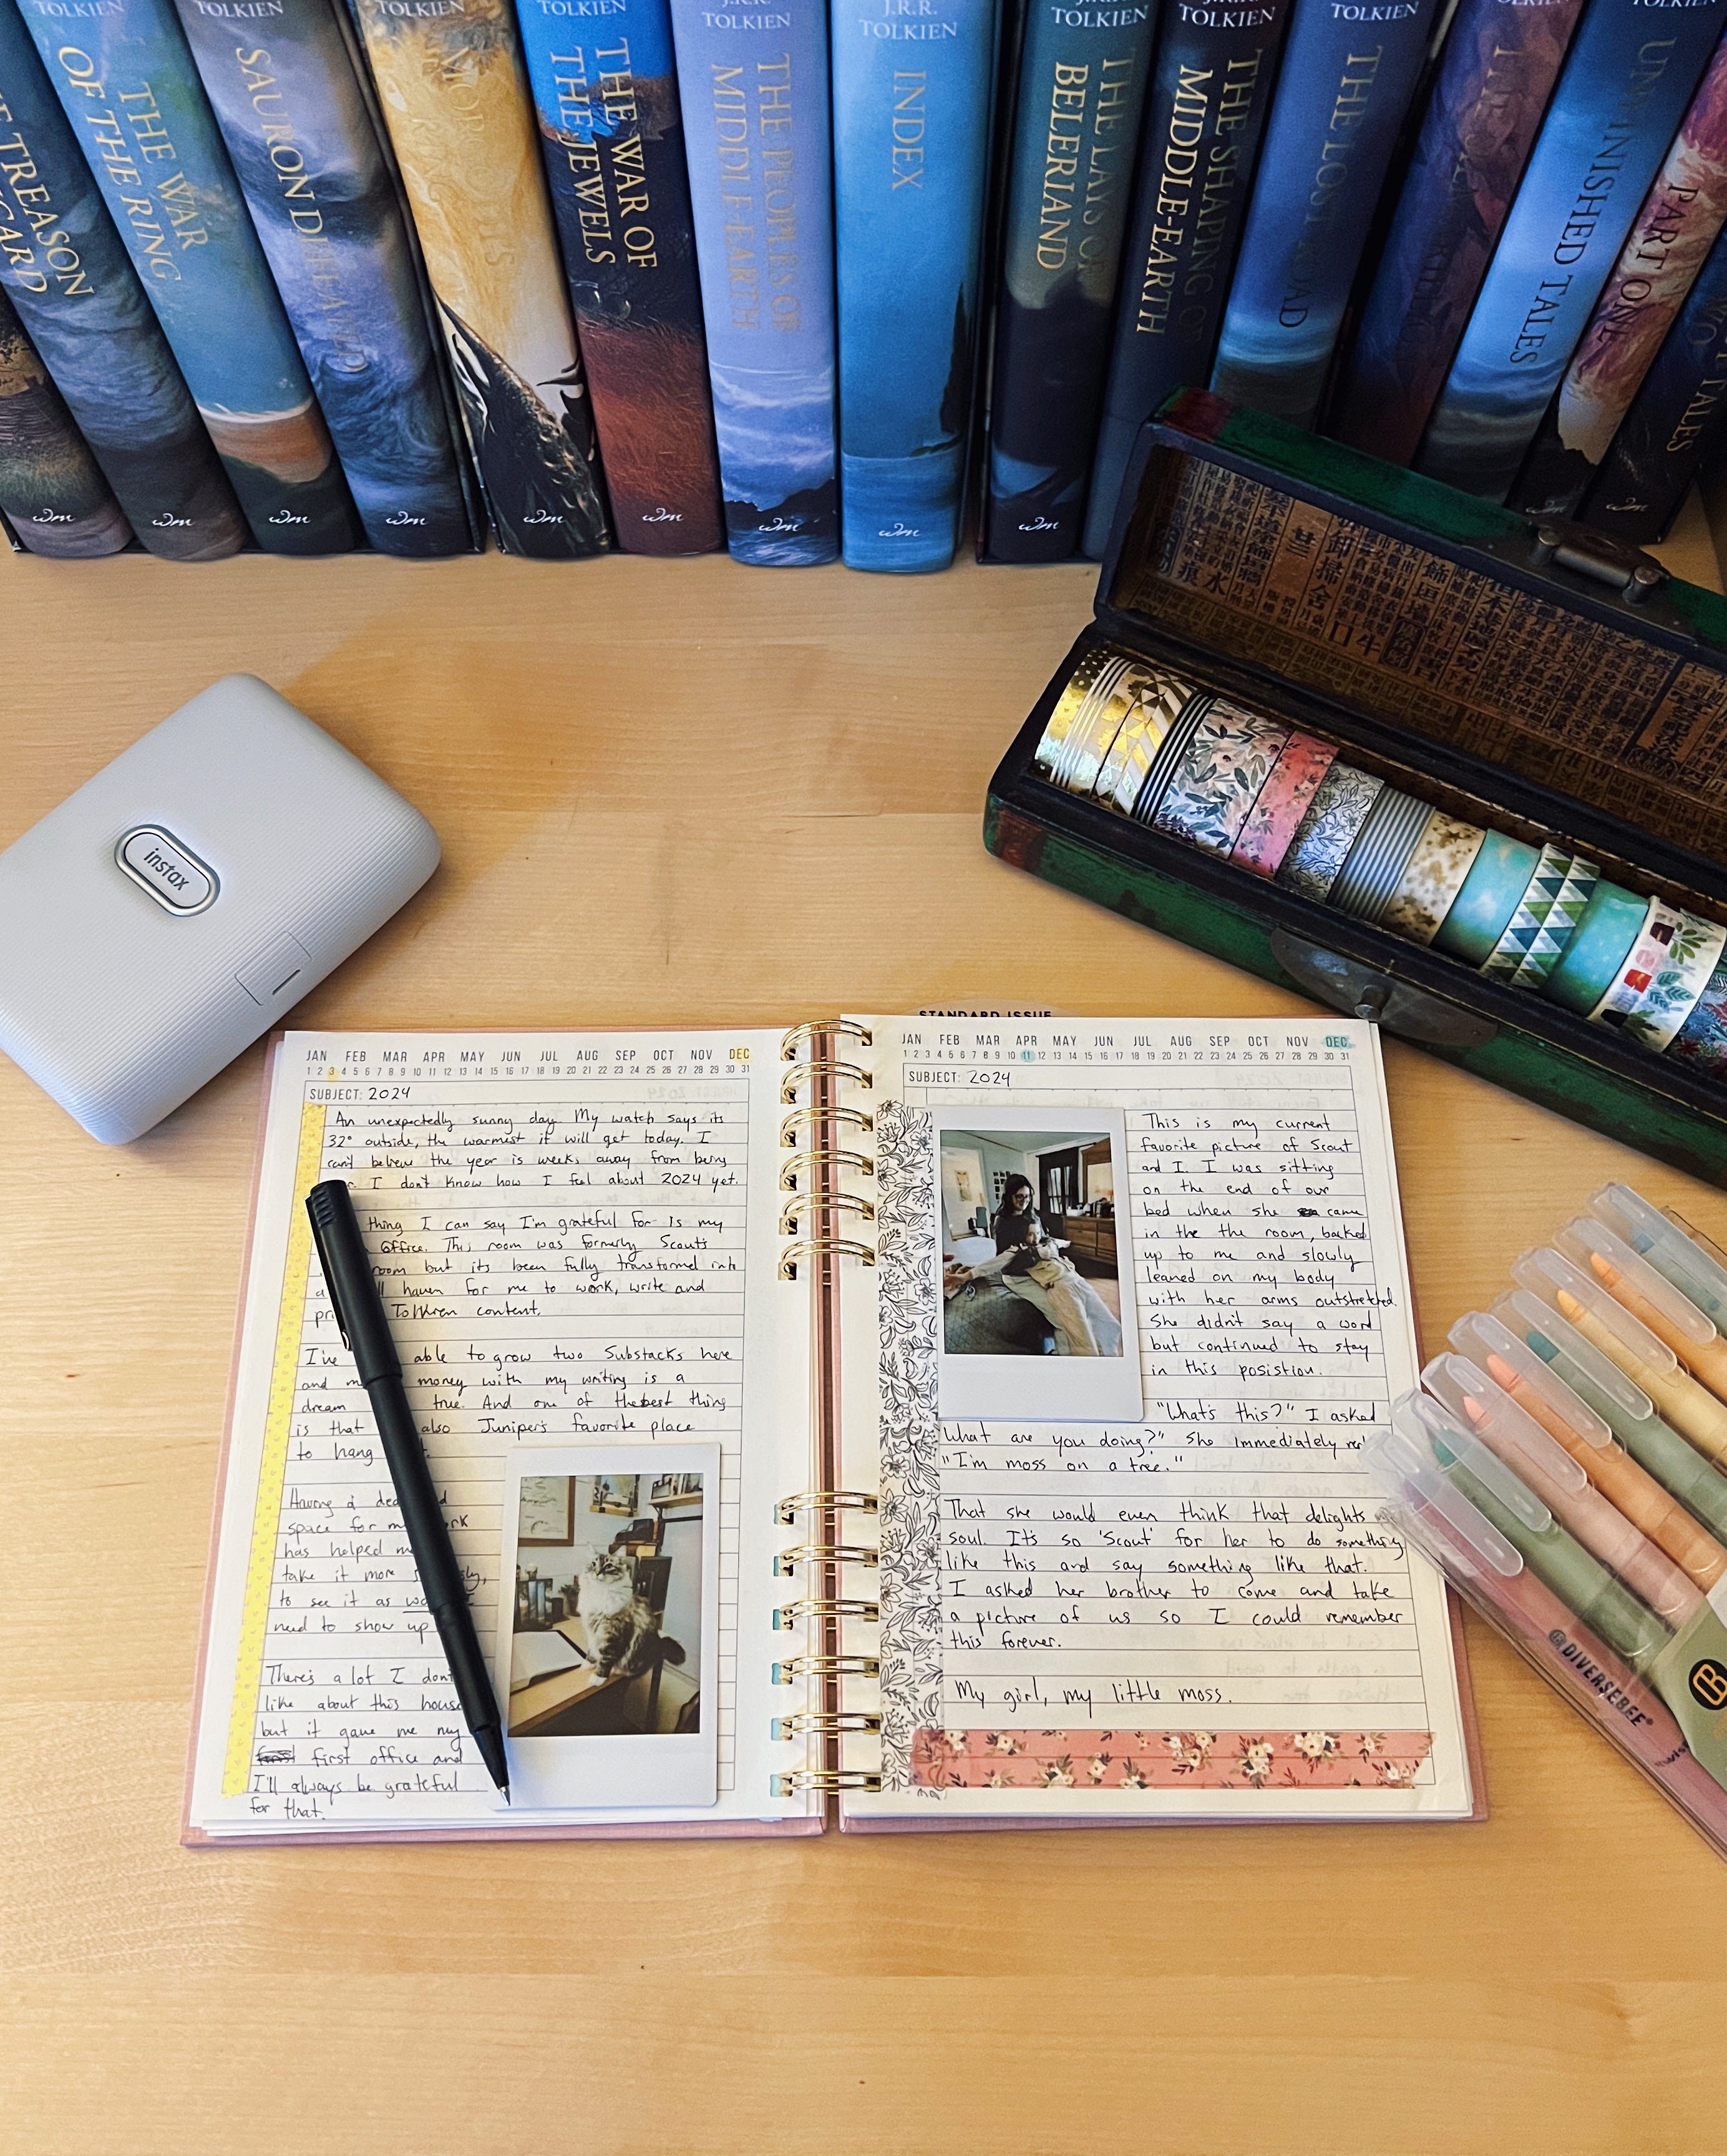 TOLKIEN
TREASON
TOLKIEN
THE WAR
OF THE RING
TOLKIEN
SAURON DEFEATED
TOLKIEN
TOLKIEN
THE WAR OF
THE JEWELS
J.R.R.
TOLKIEN
THE PEOPLES OF
MIDDLE-EARTH
J.R.R.
TOLKIEN
INDEX
J.R.R.
TOLKIEN
THE LAYS OF
BELERIAND
J.R.R.
TOLKIEN
THE SHAPING OF
MIDDLE-EARTH
TOLKIEN
THE LOST ROAD
TOLKIEN
THE
UNFINISHED TALES
PART ONE
TALES
instax
STANDARD ISSUE
JAN FEB MAR APR MAY JUN JUL AUG SEP OCT NOV DEC
1 2 3 4 5 6 7 8 9 10 11 12 13 14 15 16 17 18 19 20 21 22 23 24 25 26 27 28 29 30 31
SUBJECT: 2024
An unexpectedly sunny day. My watch says its
32° outside, the warmest it will get today. I
can't believe the year is weeks away from being
I don't know how I feel about 2024 yet.
thing I can say I'm grateful for is my
office. This room was formerly Scout's
room but its been fully transformed into
a haven for me to work, write and
Tolkien content.
I've able to grow two Substacks here
and money with my writing is a
dream true. And one of the best thing
is that also Juniper's favorite place
to hang
Having a
space for
has helped
take it more
to see it as
need to show up
There's a lot I don't
like about this house
but it gave me my
first office and
I'll always be grateful
for that.
JAN FEB MAR APR MAY JUN JUL AUG SEP OCT NOV DEC
1 2 3 4 5 6 7 8 9 10 11 12 13 14 15 16 17 18 19 20 21 22 23 24 25 26 27 28 29 30 31
SUBJECT: 2024
This is my current
favorite picture of Scout
and I. I was sitting
on the end of our
bed when she came
in the the room, backed
up to me and slowly
leaned on my body
with her arms outstretched.
She didn't say a word
but continued to stay
in this posistion.
"What's this?" I asked
"What are you doing?" She immediately
"I'm moss on a tree."
That she would even think that delights
soul. It's so 'Scout' for her to do something
like this and say something like that.
I asked her brother to come and take
a picture of us so I could remember
this forever.
My girl, my little moss.
DIVERSEBEE
B